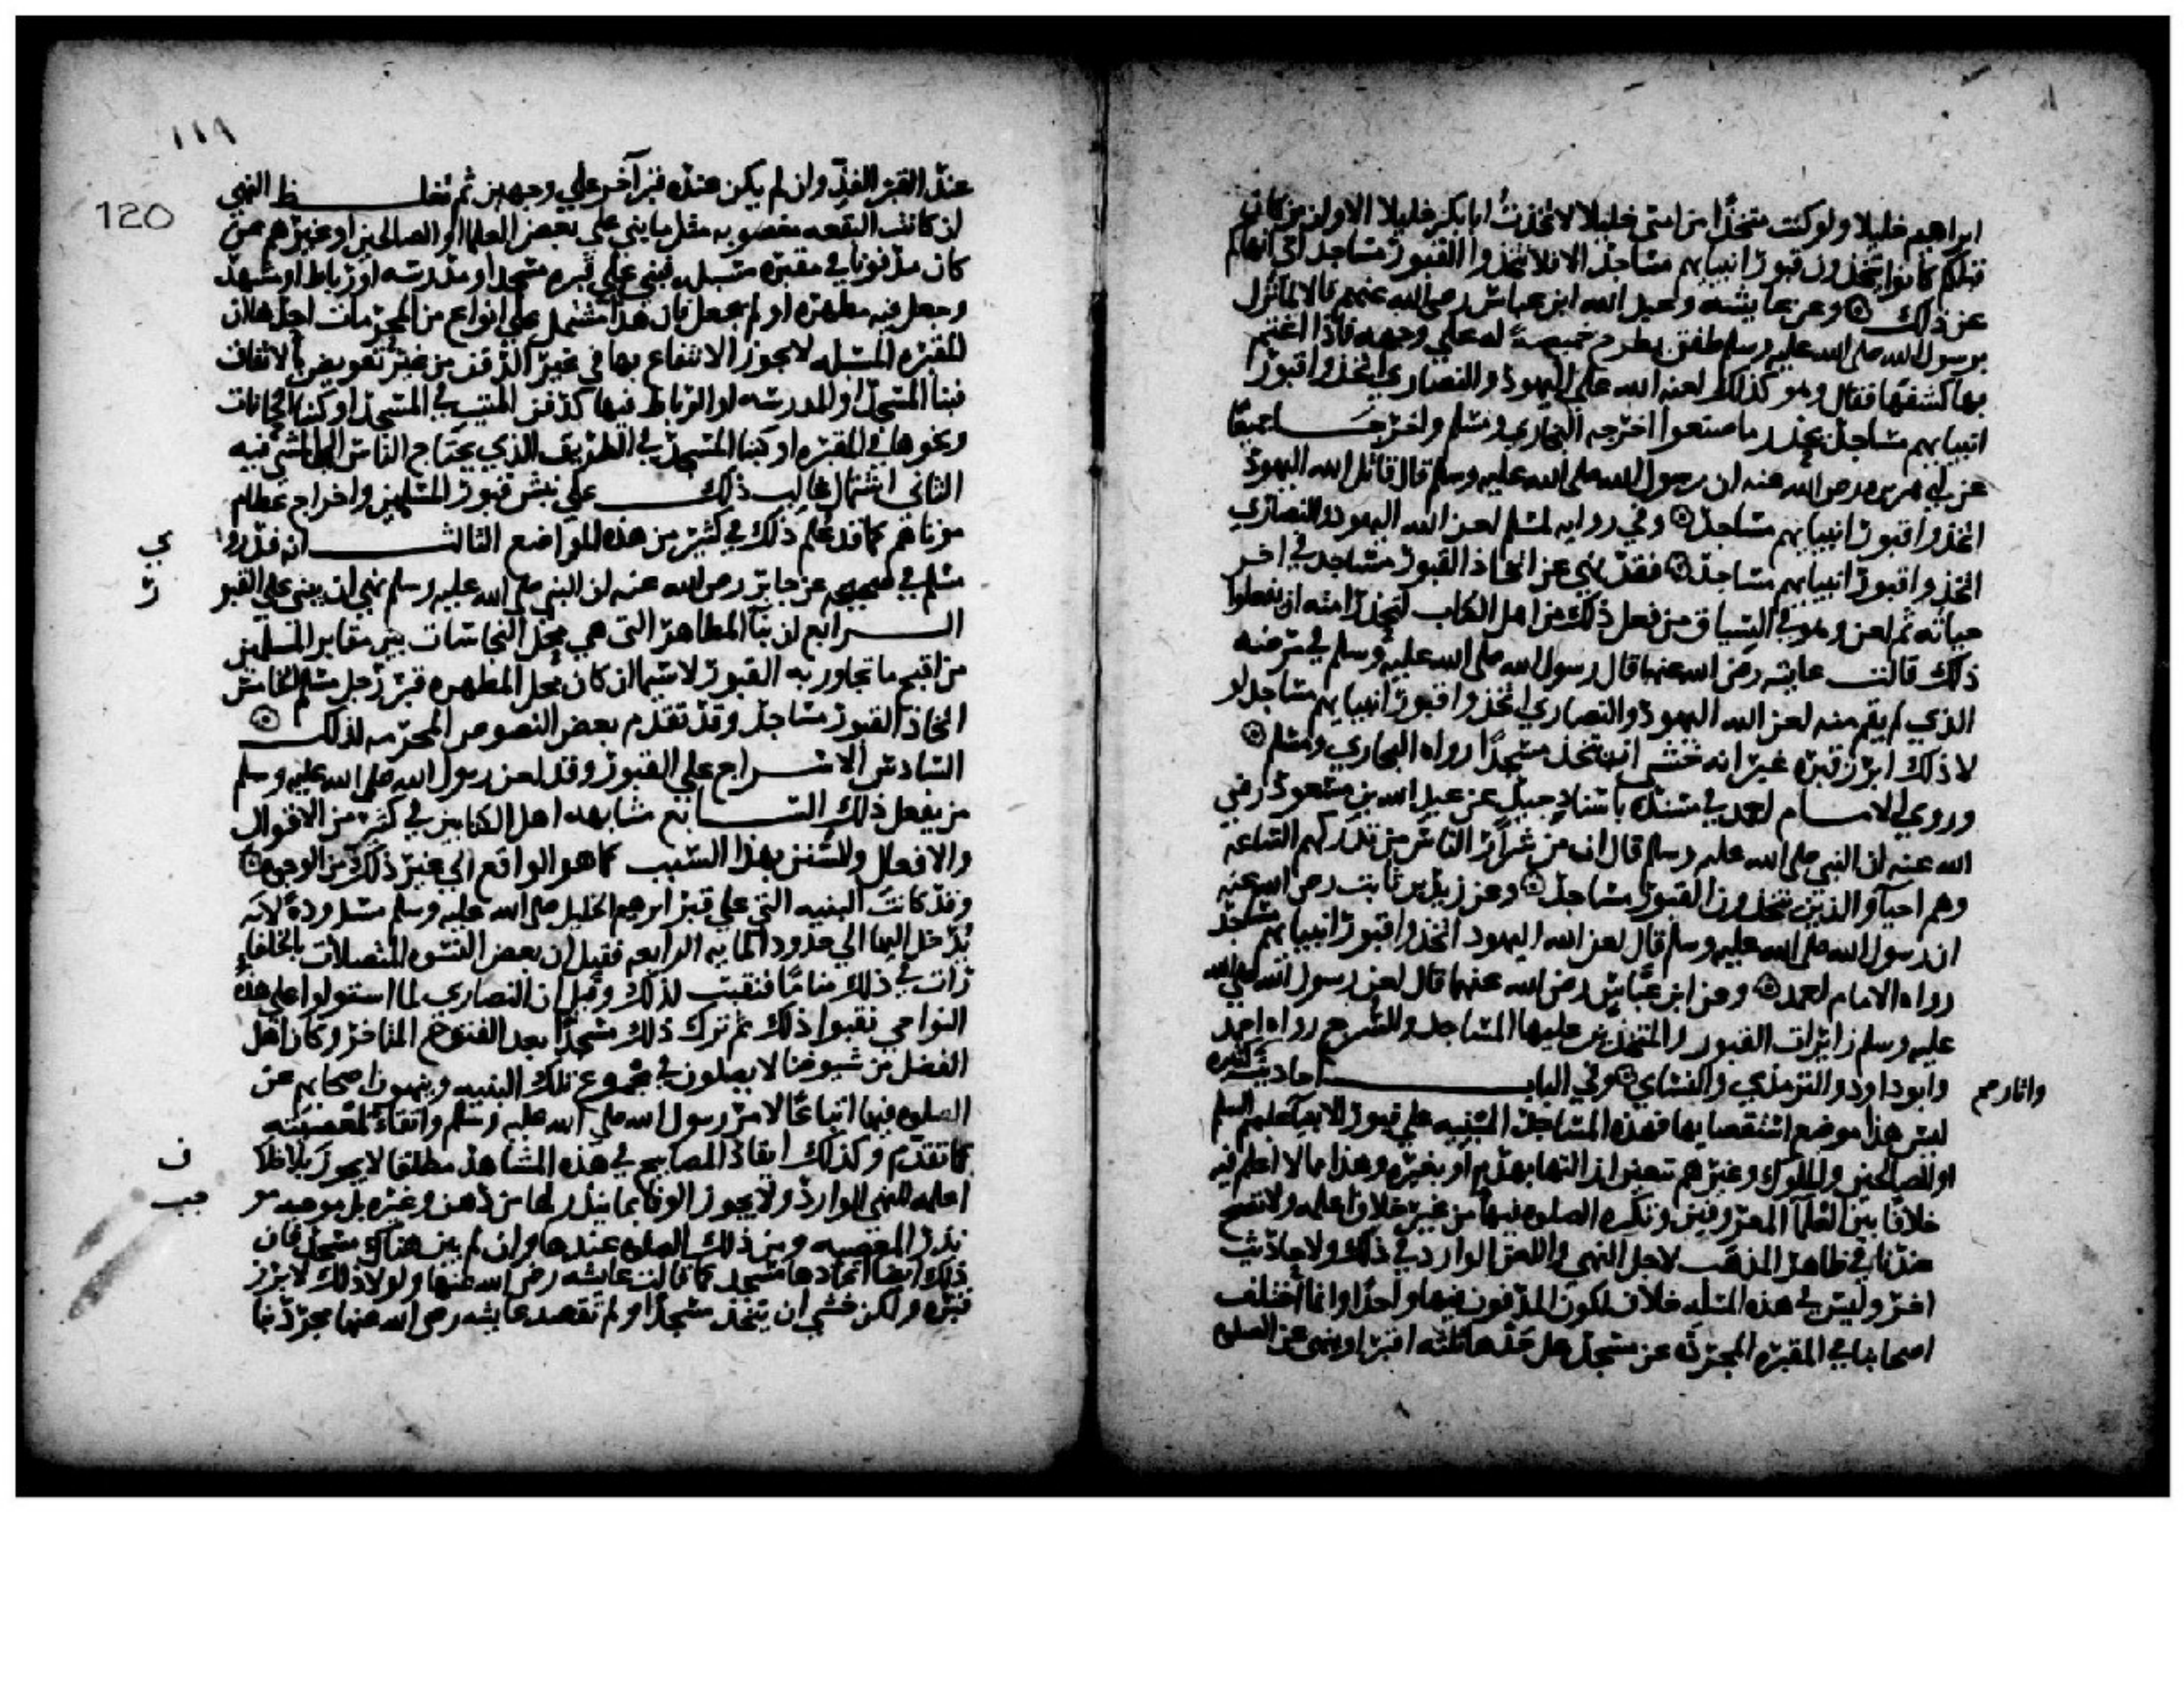 ابراهيم خليلا ولو كنت متخذا من امتي خليلا لاتخذت ابا بكر خليلا الا وان من كان
قبلكم كانوا يتخذون قبور انبيايهم مساجد الا فلا تتخذوا القبور مساجد اني انهاكم
عن ذلك وعن عايشه وعبد الله ابن عباس رضي الله عنهم قالا لما نزل
برسول الله صلى الله عليه وسلم طفق يطرح خميصة له علي وجهه فاذا اغتم
بها كشفها فقال وهو كذلك لعنه الله علي اليهود والنصاري اتخذوا قبور
انبيايهم مساجد يحذر ما صنعوا اخرجه البخاري ومسلم واخرجا جميعا
عن ابي هريره رضي الله عنه ان رسول الله صلى الله عليه وسلم قال قاتل الله اليهود
اتخذوا قبور انبيايهم مساجد وفي روايه لمسلم لعن الله اليهود والنصاري
اتخذوا قبور انبيايهم مساجد فقد نهي عن اتخاذ القبور مساجد في اخر
حياته ثم لعن وهو في السياق من فعل ذلك من اهل الكتاب ليحذر امته ان يفعلوا
ذلك قالت عايشه رضي الله عنها قال رسول الله صلى الله عليه وسلم في مرضه
الذي لم يقم منه لعن الله اليهود والنصاري اتخذوا قبور انبيايهم مساجد لو
لا ذلك ابرز قبره غير انه خشي ان يتخذ مسجدا رواه البخاري ومسلم
وروي الامام احمد في مسنده باسناد جيد عن عبد الله بن مسعود رضي
الله عنه ان النبي صلى الله عليه وسلم قال ان من شرار الناس من تدركهم الساعه
وهم احيآ والذين يتخذون القبور مساجد وعن زيد بن ثابت رضي الله عنه
ان رسول الله صلى الله عليه وسلم قال لعن الله اليهود اتخذوا قبور انبيايهم مساجد
رواه الامام احمد وعن ابن عباس رضي الله عنهما قال لعن رسول الله صلى الله
عليه وسلم زايرات القبور والمتخذين عليها المساجد والسرج رواه احمد
وابو داود والترمذي والنساي وفي الباب احاديث كثيره
واثار
ليس هذا موضع استقصايها فهذه المساجد المبنيه علي قبور الانبيآ عليهم السلم
او الصالحين والملوك وغيرهم تتعين ازالتها بهدم او بغيره وهذا مما لا اعلم فيه
خلافا بين العلمآ المعروفين وتكره الصلوه فيها من غير خلاف اعلمه ولا تصح
عندنا في ظاهر المذهب لاجل النهي واللعن الوارد في ذلك ولاحاديث
اخر وليس في هذه المسله خلاف لكون المدفون فيها واحدا وانما اختلف
اصحابنا في المقبره المجرده عن مسجد هل حدها ثلثه اقبر او ينهي عن الصلوه
١١٩
120
عند القبر الفذ وان لم يكن عنده قبر آخر علي وجهين ثم تغلظ النهي
ان كانت البقعه مغصوبه مثل ما بني علي بعض العلما او الصالحين او غيرهم ممن
كان مدفونا في مقبره مسبله فبني علي قبره مسجد او مدرسه او رباط او مشهد
وجعل فيه مطهره او لم يجعل فان هذا مشتمل علي انواع من المحرمات احدها ان
المقبره المسبله لا يجوز الانتفاع بها في غير الدفن من غير تعويض بالاتفاق
فبنا المسجد او المدرسه او الرباط فيها كدفن الميت في المسجد او كبنا الخانات
ونحوها في المقبره او كبنا المسجد في الطريق الذي يحتاج الناس الي المشي فيه
الثاني اشتمال غالب ذلك علي نبش قبور المسلمين واخراج عظام
موتاهم كما قد علم ذلك في كثير من هذه المواضع الثالث انه قد روي
مسلم في صحيحه عن جابر رضي الله عنه ان النبي صلى الله عليه وسلم نهي ان يبني علي القبور
الرابع ان بنآ المطاهر التي هي محل النجاسات بين مقابر المسلمين
من اقبح ما تجاور به القبور لا سيما ان كان محل المطهره قبر رجل مسلم الخامس
اتخاذ القبور مساجد وقد تقدم بعض النصوص المحرمه لذلك
السادس الاسراج علي القبور وقد لعن رسول الله صلى الله عليه وسلم
من يفعل ذلك السابع مشابهه اهل الكتابين في كثير من الاقوال
والافعال والسنن بهذا السبب كما هو الواقع الي غير ذلك من الوجوه
وقد كانت البنيه التي علي قبر ابرهيم الخليل صلى الله عليه وسلم مسدوده لا
يدخل اليها الي حدود المايه الرابعه فقيل ان بعض النسوه المتصلات بالخلفاء
رات في ذلك مناما فنقبت لذلك وقيل ان النصاري لما استولوا علي هذه
النواحي نقبوا ذلك ثم ترك ذلك مسجدا بعد الفتوح المتاخر وكان اهل
الفضل من شيوخنا لا يصلون في مجموع تلك البنيه وينهون اصحابهم عن
الصلوه فيها اتباعا لامر رسول الله صلى الله عليه وسلم واتقاء لمعصيته
كما تقدم وكذلك ايقاد المصابيح في هذه المشاهد مطلقا لا يجوز بلا خلاف
اعلمه للنهي الوارد ولا يجوز الوفا بما ينذر لها من دهن وغيره بل موجبه موجب
نذر المعصيه ومن ذلك الصلوه عندها وان لم يبن هناك مسجد فان
ذلك ايضا اتخادها مسجد كما قالت عايشه رضي الله عنها ولولا ذلك لابرز
قبره ولكن خشي ان يتخذ مسجدا ولم تقصد عايشه رضي الله عنها مجرد بنا